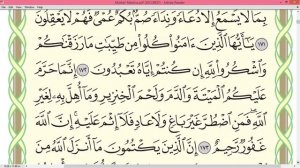 بِمَا لَا يَسْمَعُ إِلَّا دُعَاءً وَنِدَاءً صُمٌّ بُكْمٌ عُمْيٌ فَهُمْ لَا يَعْقِلُونَ
١٧١ يَا أَيُّهَا الَّذِينَ آمَنُوا كُلُوا مِن طَيِّبَاتِ مَا رَزَقْنَاكُمْ
وَاشْكُرُوا لِلَّهِ إِن كُنتُمْ إِيَّاهُ تَعْبُدُونَ ١٧٢ إِنَّمَا حَرَّمَ
عَلَيْكُمُ الْمَيْتَةَ وَالدَّمَ وَلَحْمَ الْخِنزِيرِ وَمَا أُهِلَّ بِهِ لِغَيْرِ
اللَّهِ فَمَنِ اضْطُرَّ غَيْرَ بَاغٍ وَلَا عَادٍ فَلَا إِثْمَ عَلَيْهِ إِنَّ اللَّهَ
غَفُورٌ رَّحِيمٌ ١٧٣ إِنَّ الَّذِينَ يَكْتُمُونَ مَا أَنزَلَ اللَّهُ مِنَ